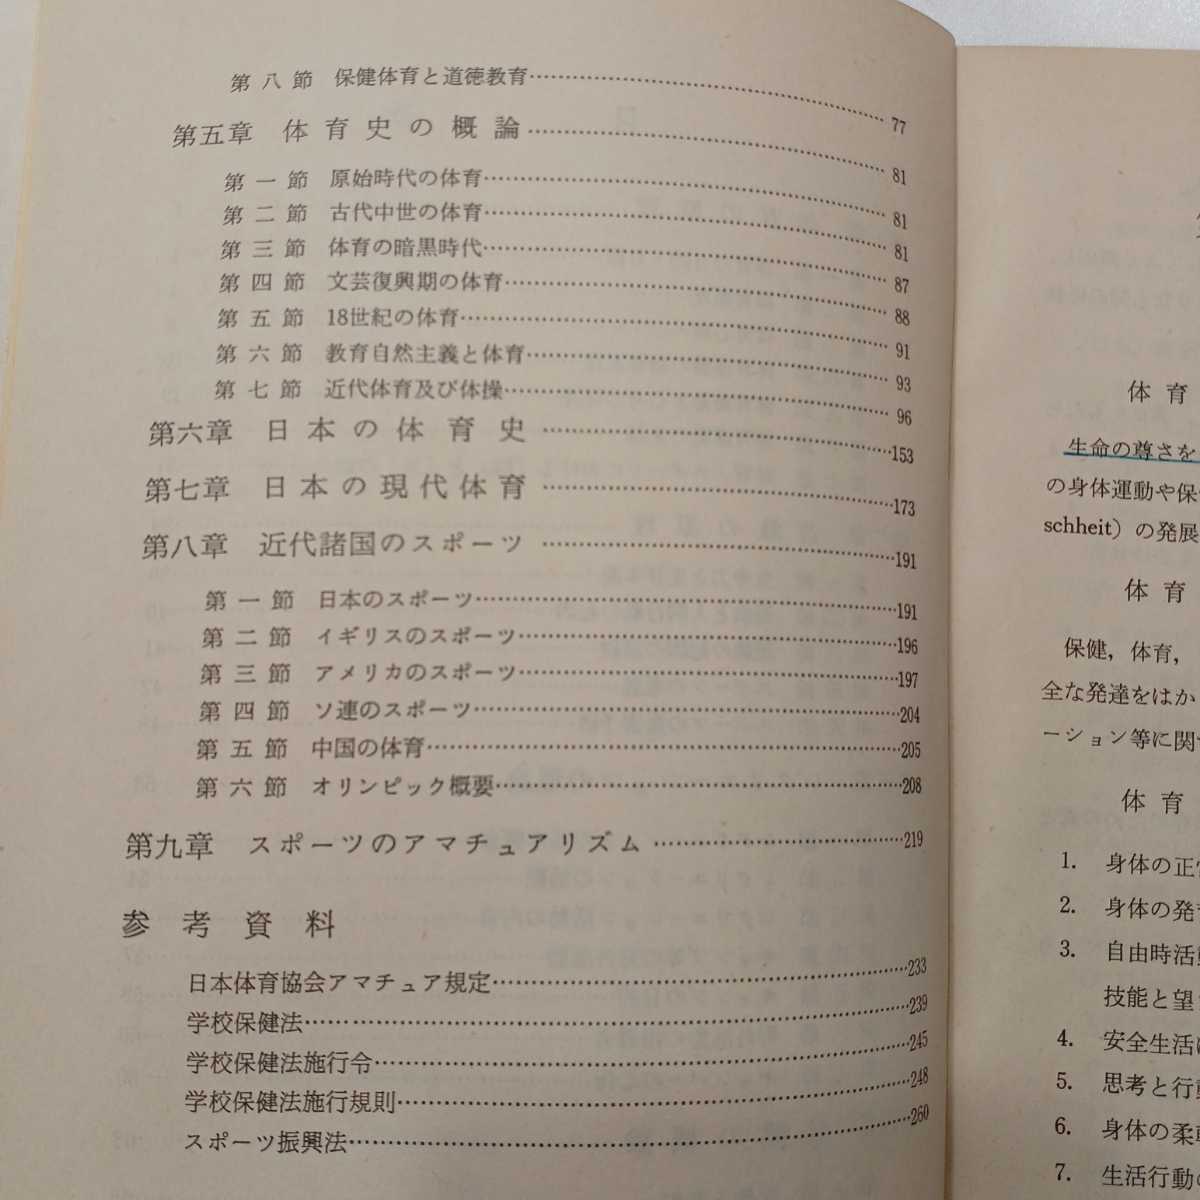 第八節 保健体育と道徳教育……77
第五章 体育史の概論……81
第一節 原始時代の体育……81
第二節 古代中世の体育……81
第三節 体育の暗黒時代……87
第四節 文芸復興期の体育……88
第五節 18世紀の体育……91
第六節 教育自然主義と体育……93
第七節 近代体育及び体操……96
第六章 日本の体育史……153
第七章 日本の現代体育……173
第八章 近代諸国のスポーツ……191
第一節 日本のスポーツ……191
第二節 イギリスのスポーツ……196
第三節 アメリカのスポーツ……197
第四節 ソ連のスポーツ……204
第五節 中国の体育……205
第六節 オリンピック概要……208
第九章 スポーツのアマチュアリズム……219
参考資料
日本体育協会アマチュア規定……233
学校保健法……239
学校保健法施行令……245
学校保健法施行規則……248
スポーツ振興法……260
体育
生命の尊さを
の身体運動や保
schheit）の発展
体育
保健，体育，
全な発達をはか
ーション等に関
体育
1. 身体の正
2. 身体の発
3. 自由時活
技能と望
4. 安全生活
5. 思考と行
6. 身体の柔
7. 生活行動